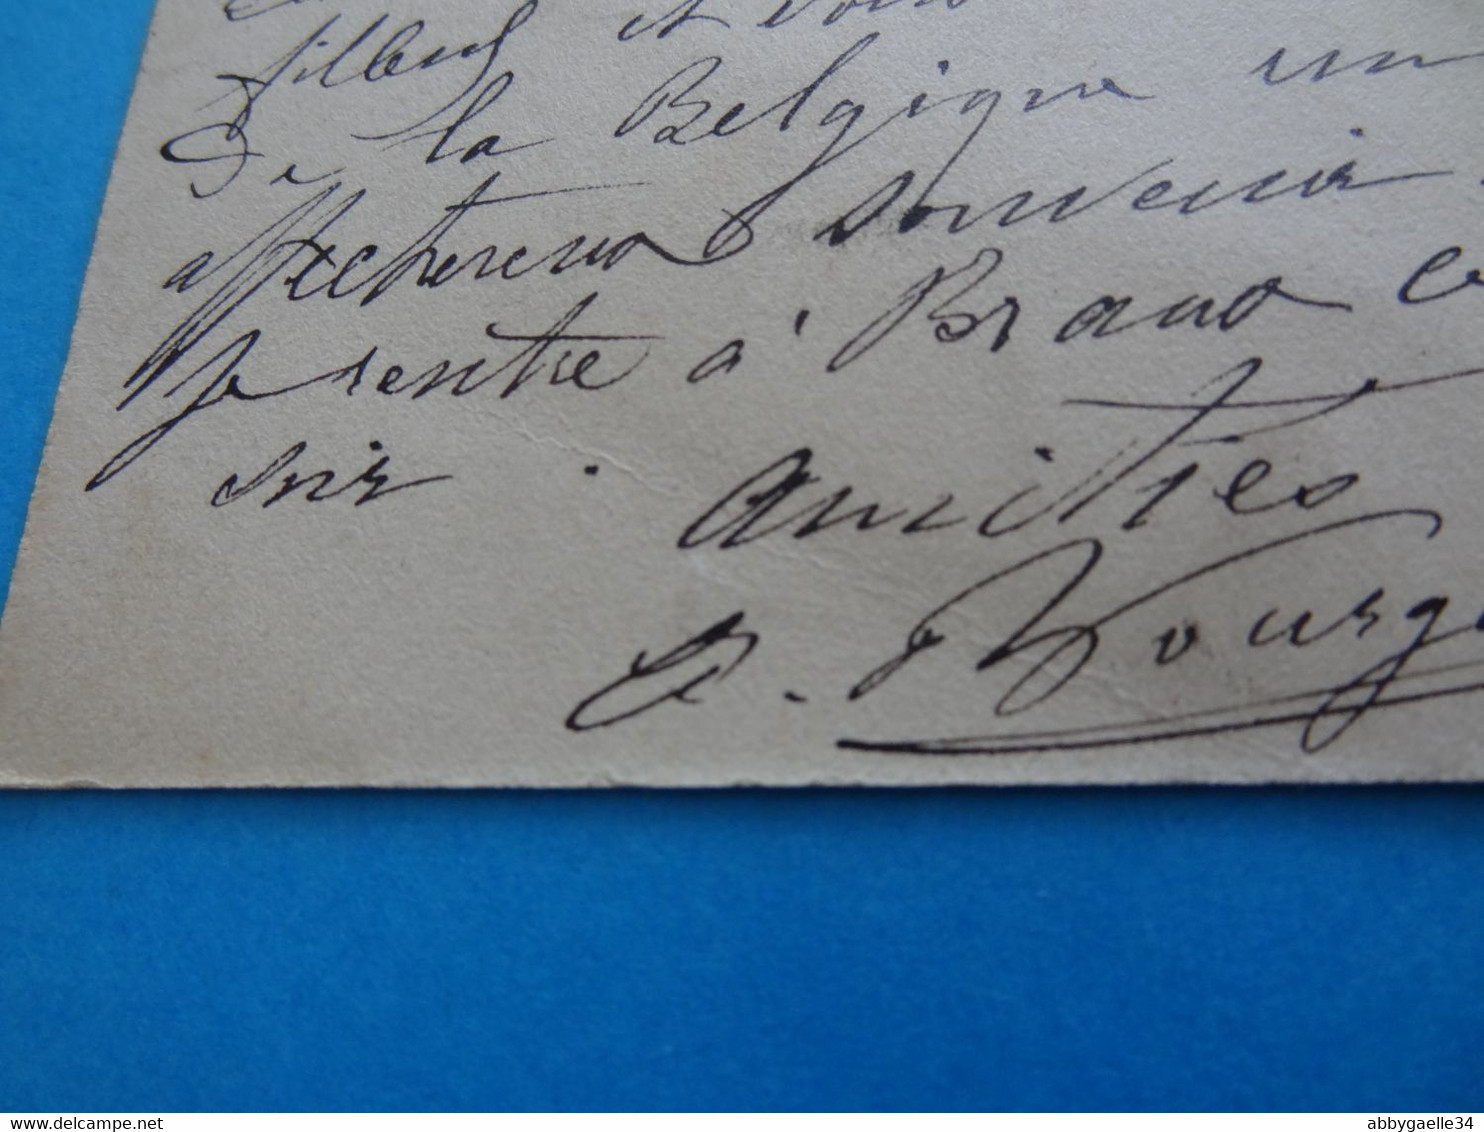 filleul et vous
De la Belgique un
affectueux souvenir.
Je rentre à Braux ce
soir.
Amitiés
Bourg
delcampe.net
abbygaelle34